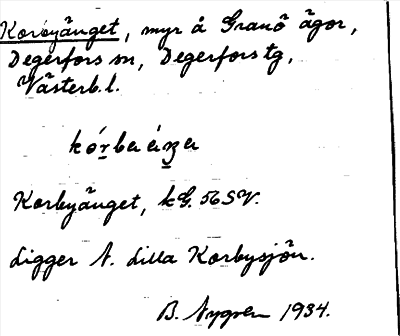 Korbyänget, myr å Granö ägor,
Degerfors sn, Degerfors tg,
Västerb. l.
Korbyänget, kG. 56SV.
Ligger N. Lilla Korbysjön.
B. Nygren 1934.